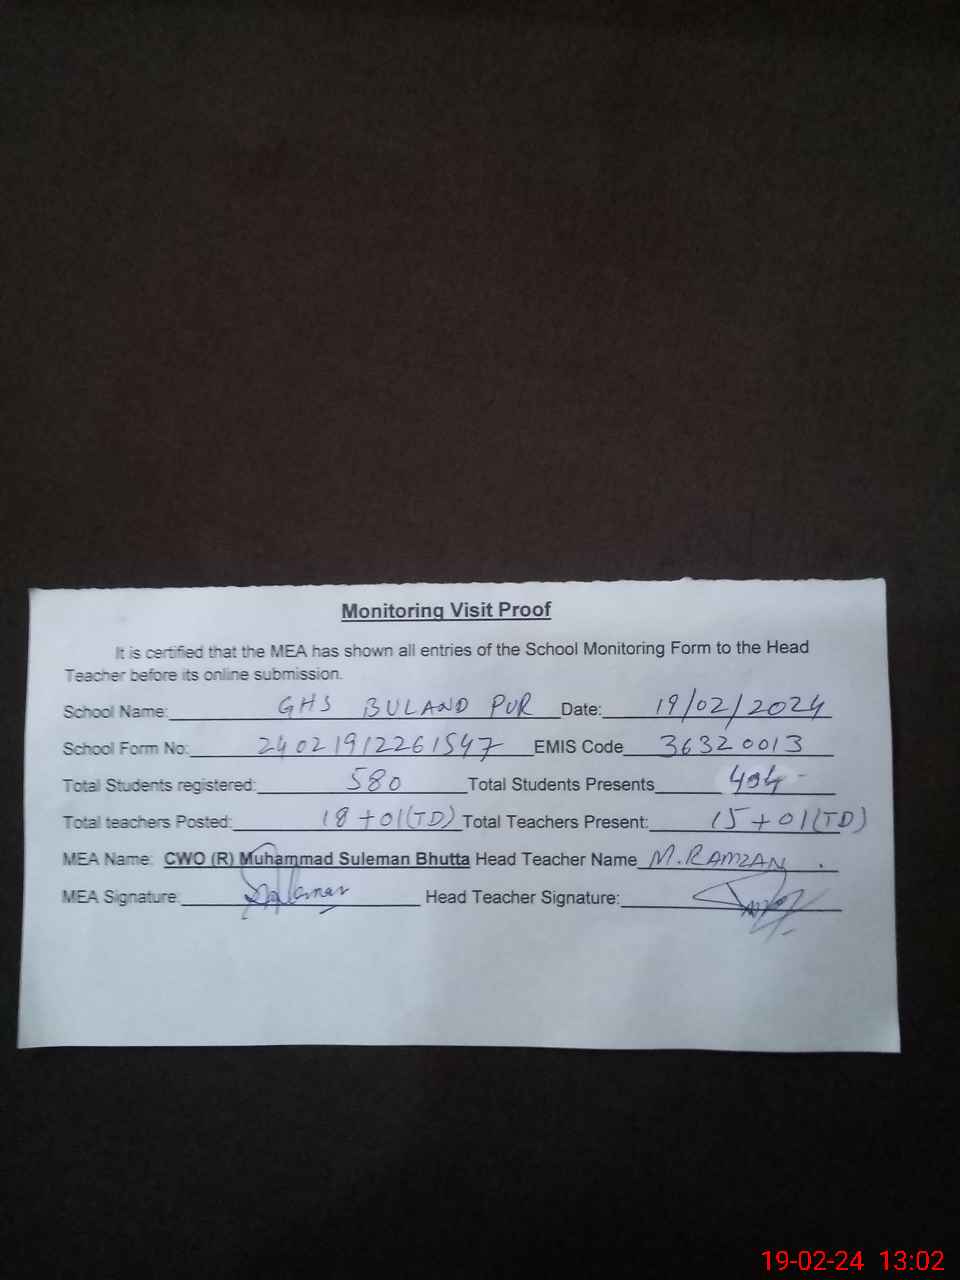 Monitoring Visit Proof
It is certified that the MEA has shown all entries of the School Monitoring Form to the Head
Teacher before its online submission.
School Name: GHS BULAND PUR Date: 19/02/2024
School Form No: 24021912261547 EMIS Code 36320013
Total Students registered: 580 Total Students Presents 494
Total teachers Posted: 18+01(TD) Total Teachers Present: 15+01(TD)
MEA Name: CWO (R) Muhammad Suleman Bhutta Head Teacher Name M.RAMZAN .
MEA Signature: Head Teacher Signature:
19-02-24 13:02